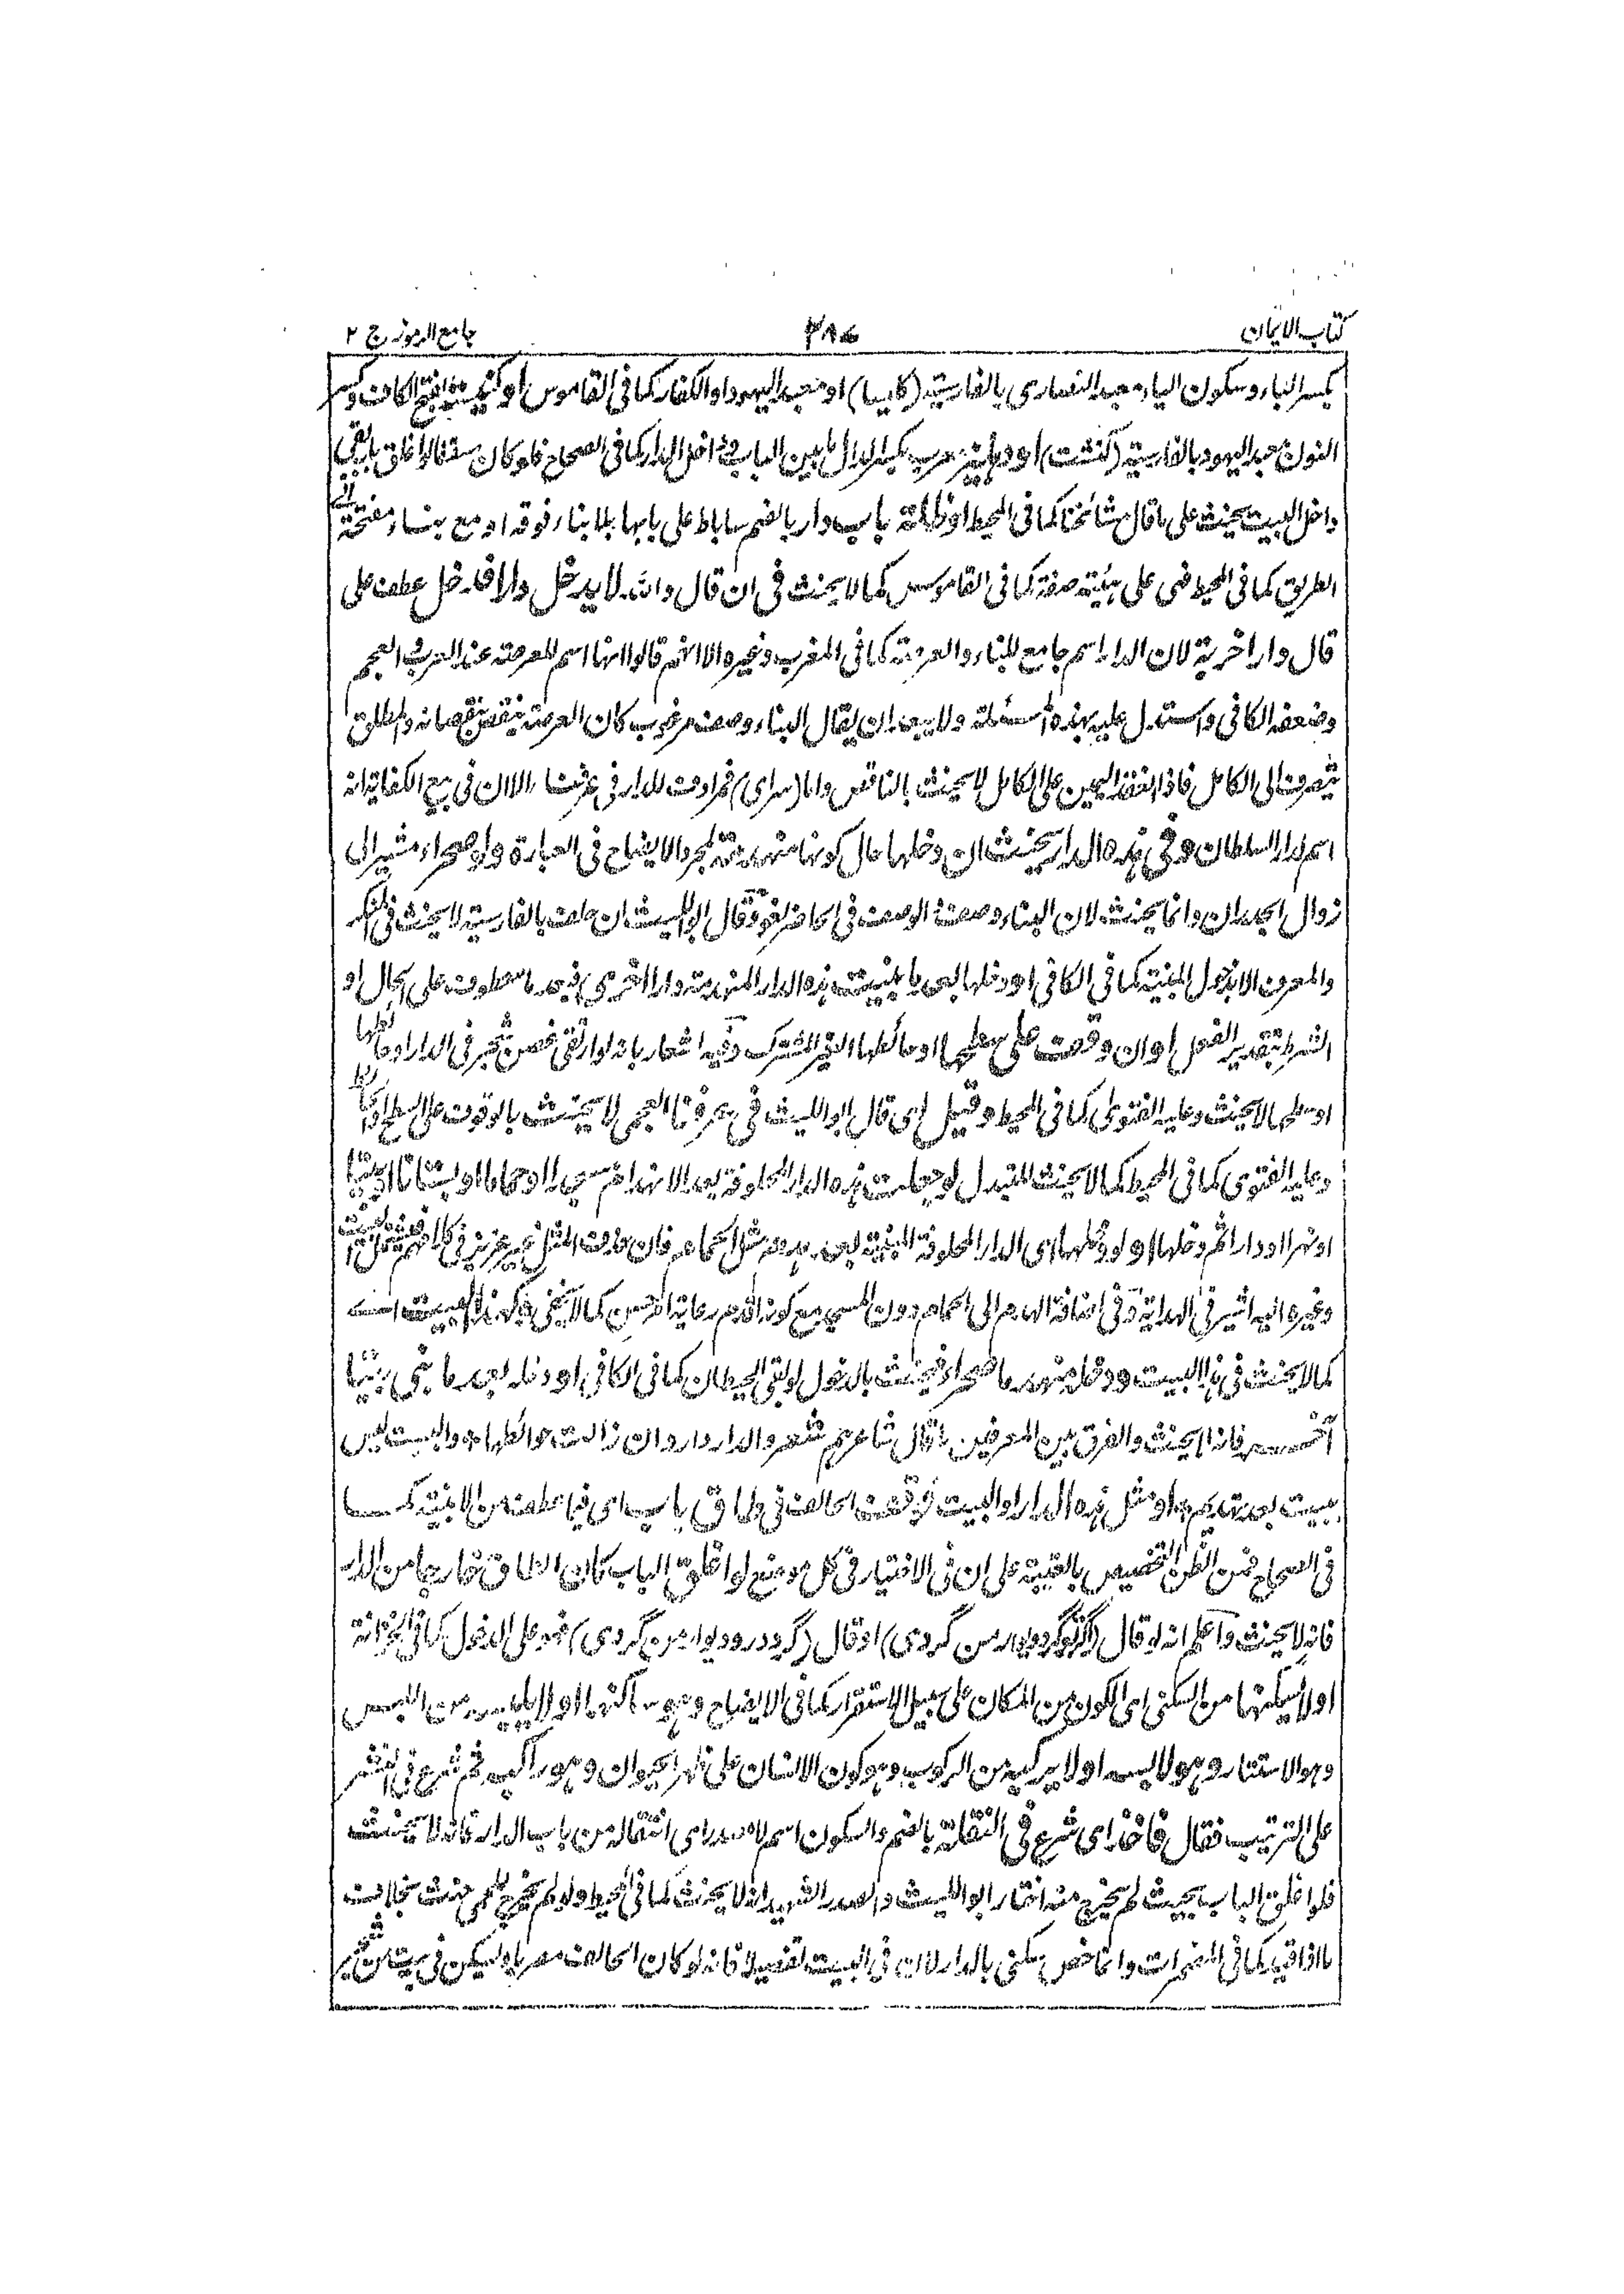 كتاب الايمان ٣٨٤ جامع الرموز ج ٢
بكسر الباء وسكون الياء معبد النصارى بالفارسية (كليسا) او معبد اليهود او الكفار كما فى القاموس او كنيسة بفتح الكاف وكسر
النون معبد اليهود بالفارسية (كنشت) او دهليز معرب بكسر الدال ما بين الباب و داخل الدار كما فى الصحاح فلو كان مسقفا لو اغلق بابه بقى
داخل البيت يحنث على ما قال مشائخنا كما فى المحيط او ظلة باب دار بالضم ساباط على بابها بلا بناء فوقه او مع بناء مفتحة الى
الطريق كما فى المحيط فهى على هيئة صفة كما فى القاموس كما لا يحنث فى ان قال والله لا يدخل دارا فدخل عطف على
قال دارا خربة لان الدار اسم جامع للبناء والعرصة كما فى المغرب وغيره الا انهم قالوا انها اسم للعرصة عند العرب و العجم
وضعفه الكافى واستدل عليه بهذه المسئلة ولا يبعد ان يقال البناء وصف مرغوب كان العرصة ينقص بنقصانه والمطلق
يتصرف الى الكامل فاذا انعقد اليمين على الكامل لا يحنث بالناقص واما (سراى) فمرادف للدار فى عرفنا الا ان فى بيع الكفاية انه
اسم لدار السلطان وفى هذه الدار يحنث ان دخلها حال كونها منهدمة لمجرد الايضاح فى العبارة ولو صحراء مشير الى
زوال الجدران وانما يحنث لان البناء وصف و الوصف فى الحاضر لغو وقال ابو الليث ان حلف بالفارسية لا يحنث فى المنكر
والمعرف الا بدخول المبنية كما فى الكافى او دخلها بعد ما بنيت هذه الدار المنهدمة دارا اخرى فبعد ما معطوف على الحال او
الشرط بتقدير الفعل او ان وقف على سطحها او حائطها الغير المشترك وفيه اشعار بانه لو ارتقى غصن شجر فى الدار او حائطها
او سطحها لا يحنث وعليه الفتوى كما فى المحيط وقيل اى قال ابو الليث فى عرفنا العجمى لا يحنث بالوقوف على السطح او الحائط
وعليه الفتوى كما فى المحيط كما لا يحنث للتبدل لو جعلت هذه الدار المحلوفة بعد الانهدام مسجدا او حماما او بستانا او بيتا
او نهرا او دارا ثم دخلها او لو دخلها اى الدار المحلوفة المبنية بعد هدم مثل الحمام فان حذف المثل غير عزيز فى كلامهم فيشمل البيت
وغيره اليه اشير فى الهداية وفى اضافة الهدم الى الحمام دون المسجد مع كونه اقدم رعاية الحسن كما لا يخفى وكهذا البيت اى
كما لا يحنث فى هذا البيت ودخله منهدما صحراء فيحنث بالدخول لو بقى الحيطان كما فى الكافى او دخله بعد ما بنى بيتا
آخر فانه لا يحنث والفرق بين المعرفين ما قال شاعرهم شعر والدار دار وان زالت حوائطها و والبيت ليس
ببيت بعد تهديم او مثل هذه الدار او البيت لو وقف الحالف فى طاق باب اى فيما عطف من الابنية كما
فى الصحاح فمن الظن التخصيص بالعتبة على ان فى الاختيار فى كل موضع لو اغلق الباب كان الطاق خارجا من الدار
فانه لا يحنث واعلم انه لو قال (اگر تو گرد ديوار من گردى) او قال (گرد در و ديوار من گردى) فهو على الدخول كما فى الخزانة
او لا يسكنها من السكنى اى الكون من المكان على سبيل الاستقرار كما فى الايضاح وهو ساكنها او لا يلبسه من اللبس
وهو الاستتار وهو لابسه او لا يركبه من الركوب وهو كون الانسان على ظهر الحيوان وهو راكبه ثم شرع فى النشر
على الترتيب فقال فاخذ اى شرع فى النقلة بالضم والسكون اسم لا مصدر اى انتقاله من باب الدار فانه لا يحنث
فلو اغلق الباب بحيث لم يخرج منه اختار ابو الليث والصدر الشهيد انه لا يحنث كما فى المحيط ولو لم يخرج حنث بخلاف
ما اذا قيد كما فى المضمرات وانما خص سكنى بالدار لان فى البيت تفصيلا فانه لو كان الحالف مصريا ولم يسكن فى بيت من شعر